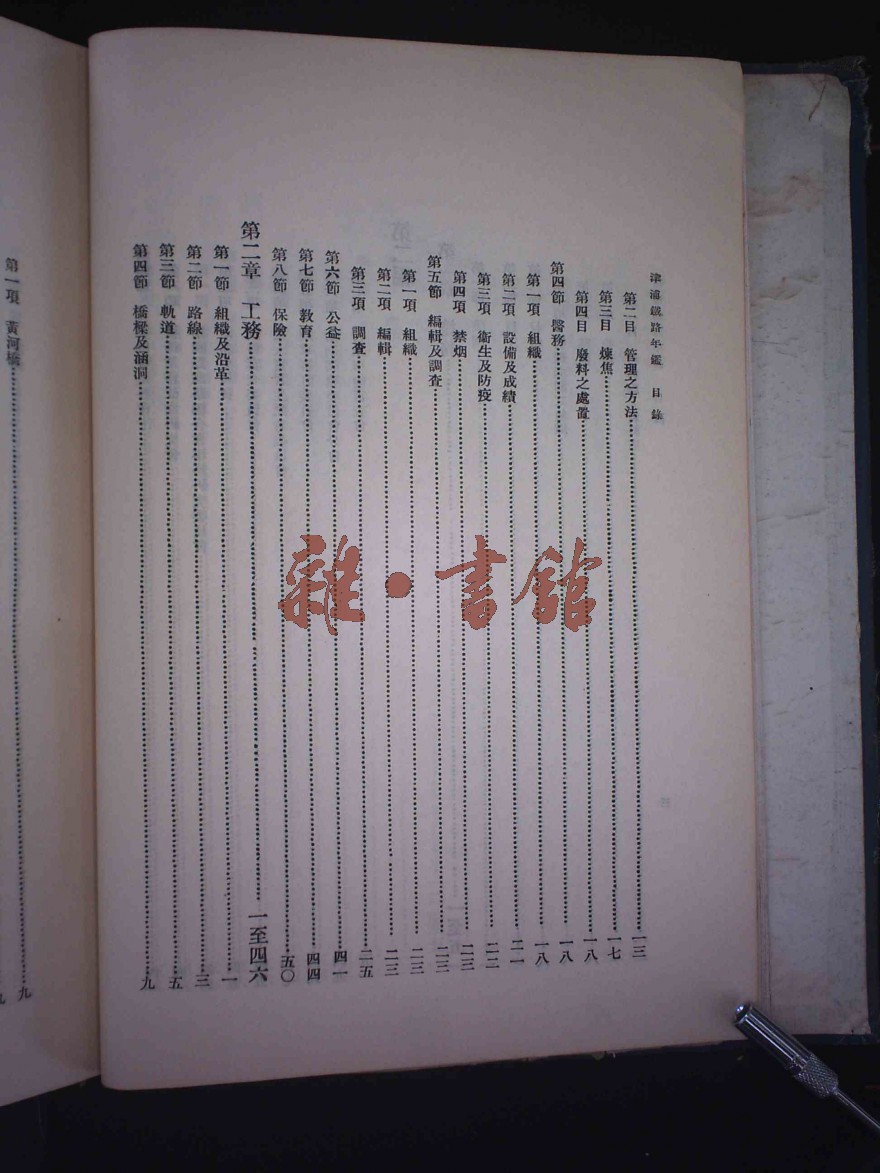 津浦鐵路年鑑 目錄
第二目 管理之方法 一三
第三目 煉焦 一七
第四目 廢料之處置 一八
第四節 醫務 一八
第一項 組織 一八
第二項 設備及成績 二一
第三項 衞生及防疫 二二
第四項 禁烟 二三
第五節 編輯及調查 二三
第一項 組織 二三
第二項 編輯 二三
第三項 調查 二五
第六節 公益 四一
第七節 教育 四四
第八節 保險 五〇
第二章 工務 一至四六
第一節 組織及沿革 一
第二節 路線 三
第三節 軌道 五
第四節 橋樑及涵洞 九
第一項 黃河橋 九
九
雜·書館